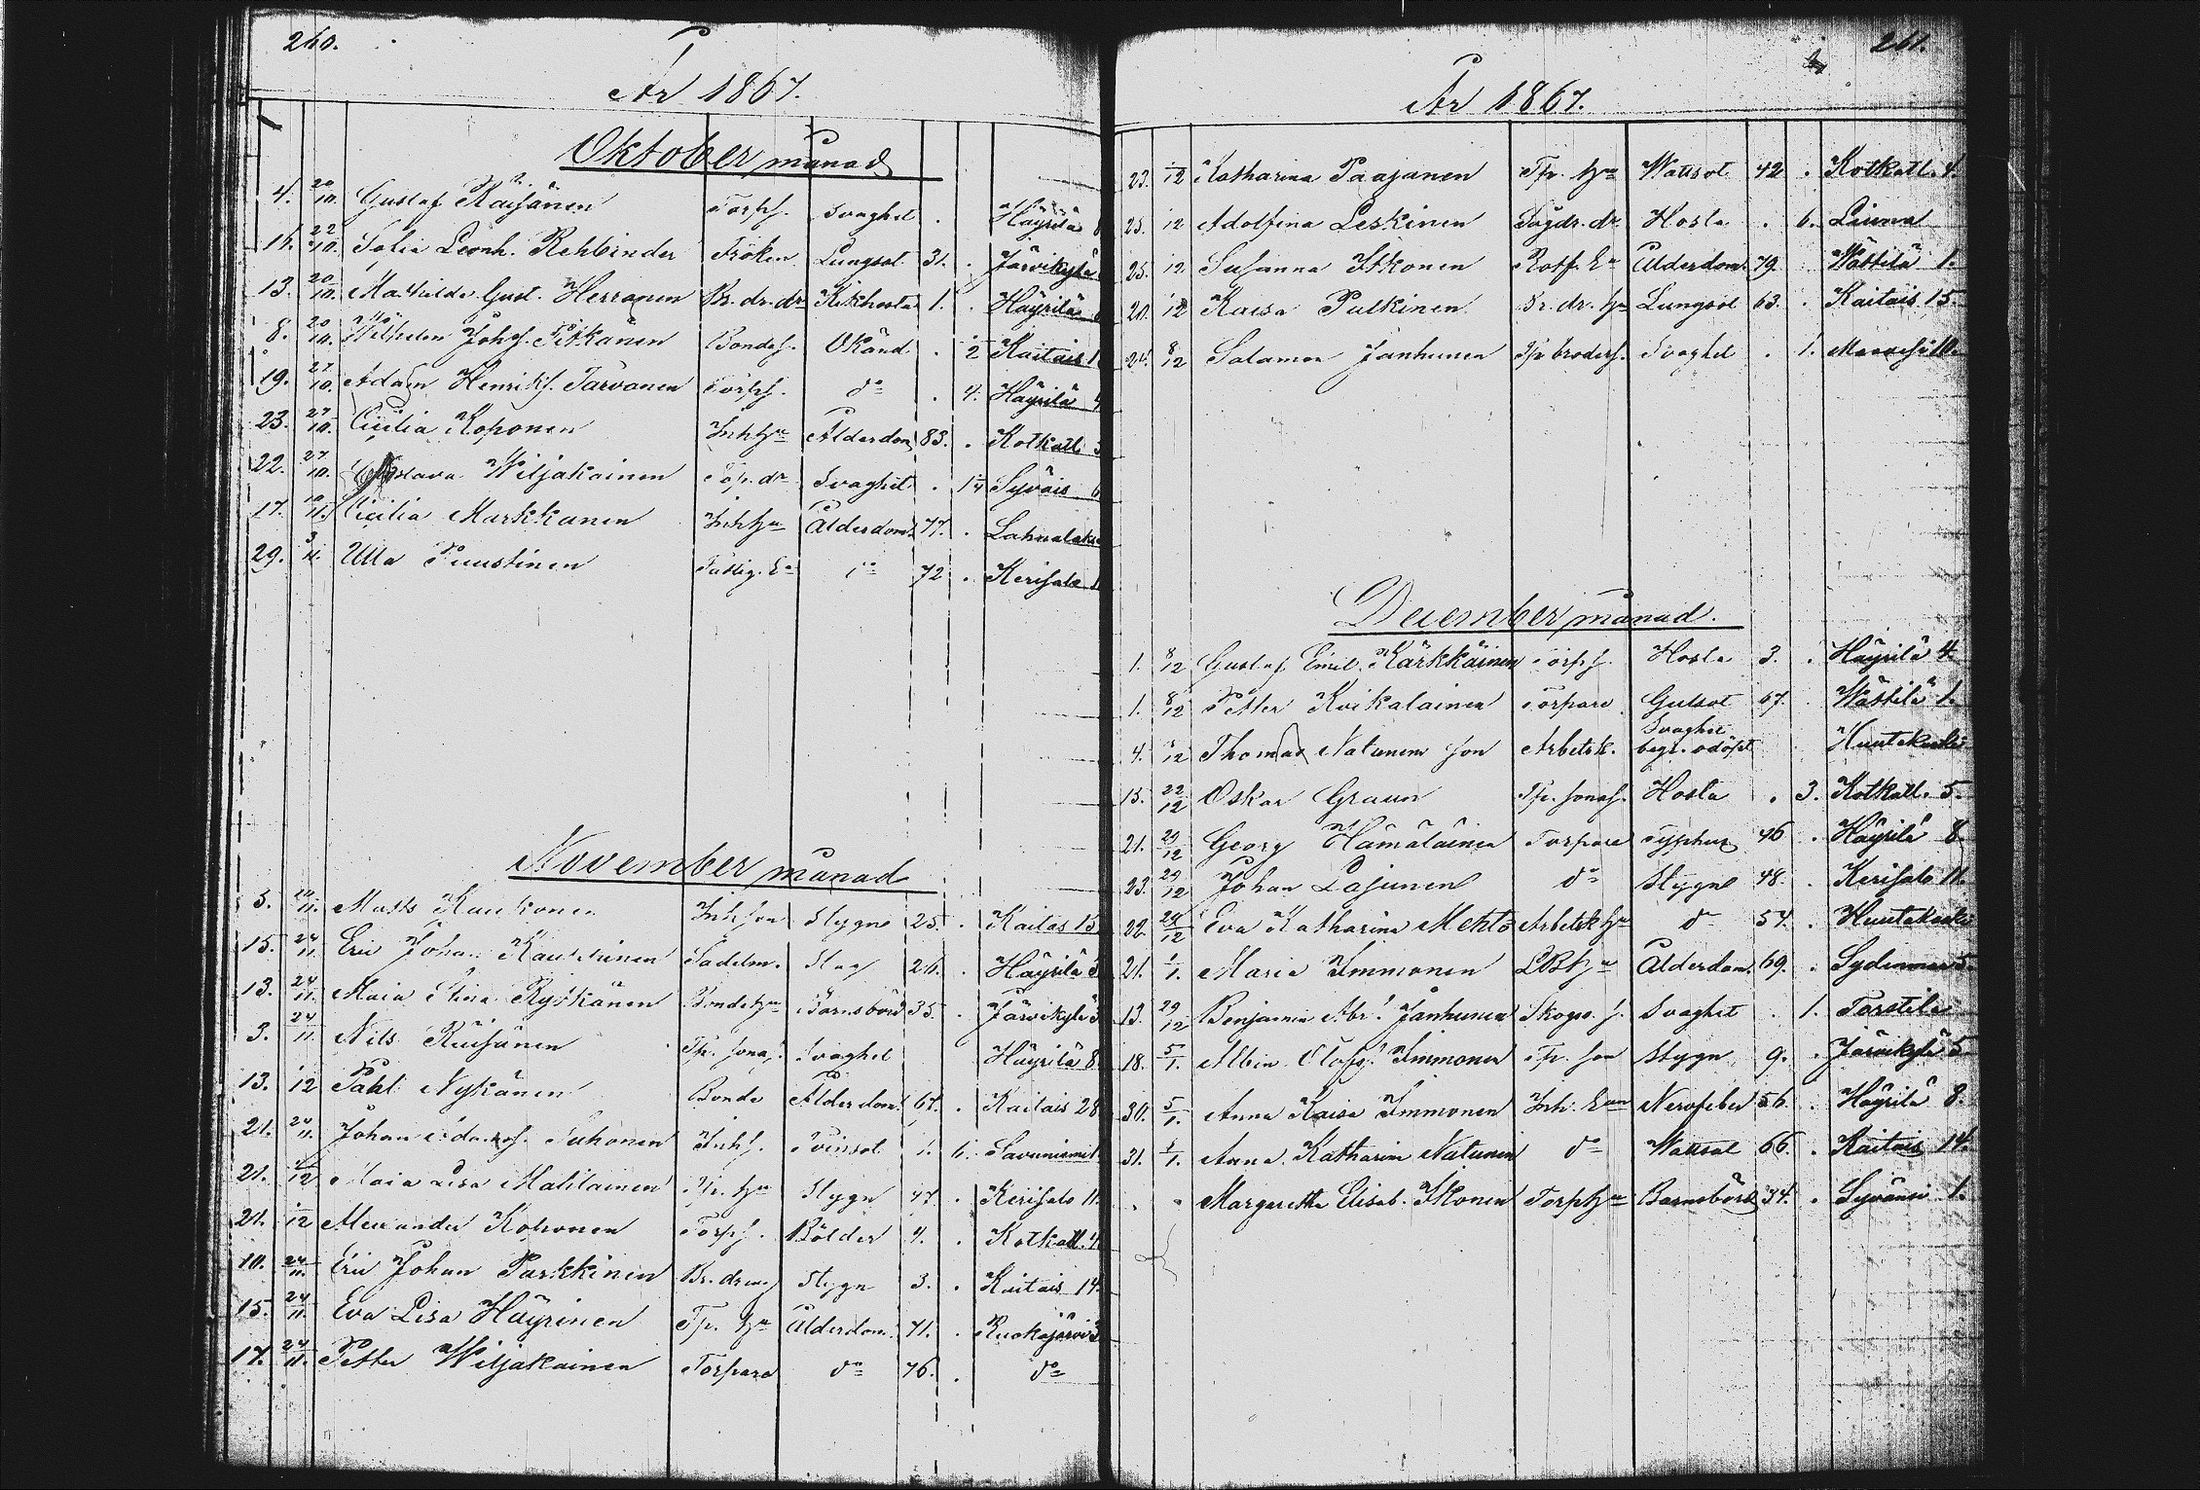 260.
År 1867.
Oktober månad
4. 20/10. Gustaf Räisänen Torps. Svaghet . Häyrilä 8
11. 22/10. Sofia Leonh. Rehbinder Fröken Lungsot 31. . Järvikylä
13. 20/10. Mathilda Gust. Herranen Br. dr. dr Kikhosta 1. . Häyrilä
8. 20/10. Wilhelm Johs. Pitkänen Bondes. Okänd . 1/2 Kaitais 1
19. 27/10. Adam Henriks. Tarvonen Torps. do . 4. Häyrilä 4
23. 27/10. Cicilia Koponen Inhhu Ålderdom 83. . Kotkatl. 3
22. 27/10. Gustava Wiljakainen Tp. dr Svaghet . 1/4 Syväis 6
17. 10/11. Cicilia Markkanen Inhhu Ålderdom 77. . Lahnalaks
29. 3/11. Ulla Puustinen Fattig. Ea do 72 . Kerisalo
November månad
3. 10/11. Matts Kaukonen Inh son Stygn 25. . Kaitais 15
15. 24/11. Eric Johan Sadelm. Slag 26. . Häyrilä 3
13. 24/11. Maia Stina Rytkönen Bondehu Barnsbörd 35. . Järvikylä 3
3. 24/11. Nils Räisänen Tp. sonas. Svaghet Häyrilä 8
13. 12 Påhl Nykänen Bonde Ålderdom 67. . Kaitais 28
21. 24/11. Johan Suhonen Inhs. Tvinsot 1. 6. Savuniemi 1.
21. 12 Maia Lisa Mahlainen Tp. hu Stygn 47 . Kerisalo 11.
21. 12 Alexander Koponen Torps. Bölder 4. . Kotkatl. 4
10. 24/11. Eric Johan Parkkinen Br. dreng Stygn 3. . Kaitais 14.
15. 24/11. Eva Lisa Häyrinen Tp. hu Ålderdom 71. . Ruokojärvi 3
17. 24/11. Petter Wiljakainen Torpare do 76. . do
261.
År 1867.
23. 1/12 Katharina Paajanen Tp. hu Wattsot 42 . Kotkatl. 4.
25. 12 Adolfina Leskinen Hosta . 6. Liuna
25. 12 Susanna Itkonen Rotf. Ea Ålderdom 79. . Wättilä 1.
20. 12 Kaisa Pulkinen Br. dr. hu Lungsot 63. . Kaitais 15
24. 8/12 Salamon Janhunen Tp broders. Svaghet . 1. 10.
December månad.
1. 8/12 Gustaf Emil. Kärkkäinen Torps. Hosta 3. . Häyrilä 4.
1. 8/12 Petter Kvikalainen Torpare Gulsot 67. . Wättilä 1.
4. 12 Thomas Natunens son Arbetsk. Svaghet begr. odöpt Huutokoski
15. 22/12 Oskar Graun Tp. sonas. Hosta . 3. Kotkatl. 5.
21. 29/12 Georg Hämäläinen Torpare Typhus 46 . Häyrilä 8
23. 29/12 Johan Lajunen do Stygn 48. . Kerisalo 11.
22. 24/12 Eva Katharina Mehto Arbetsk hu do 54. . Huutokoski
21. 1/1. Maria Immonen LBhu Ålderdom 69. . 5.
13. 29/12 Benjamin Abr. Janhunen Skogv. s. Svaghet . 1. Torstila
18. 5/1. Albin Olofs. Immonen Tp. son Stygn 9. . Järvikylä 5
30. 5/1. Anna Kaisa Immonen Inh. Nervfeber 56. . Häyrilä 8.
31. 1/1. Anna Katharina Natunen do Wattsot 66. . Kaitais 14.
. " Margaretha Elisab. Itkonen Torphu Barnsbörd 34. . Syvänsi 1.